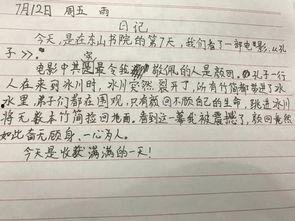 7月12日 周五 雨
日记
今天,是在东山书院的第7天,我们看了一部电影:《孔
子》。
电影中其中最令我敬佩的人是颜回,孔子一行
人在来到冰川时,冰川突然裂开了,所有竹简都掉进了水
水里,弟子们都在围观,只有颜回不顾自己的生命,跳进冰川
将无数本竹简捡回地面,看到这一幕我被震撼了,颜回竟然
如此奋无顾身、一心为人。
今天是收获满满的一天!